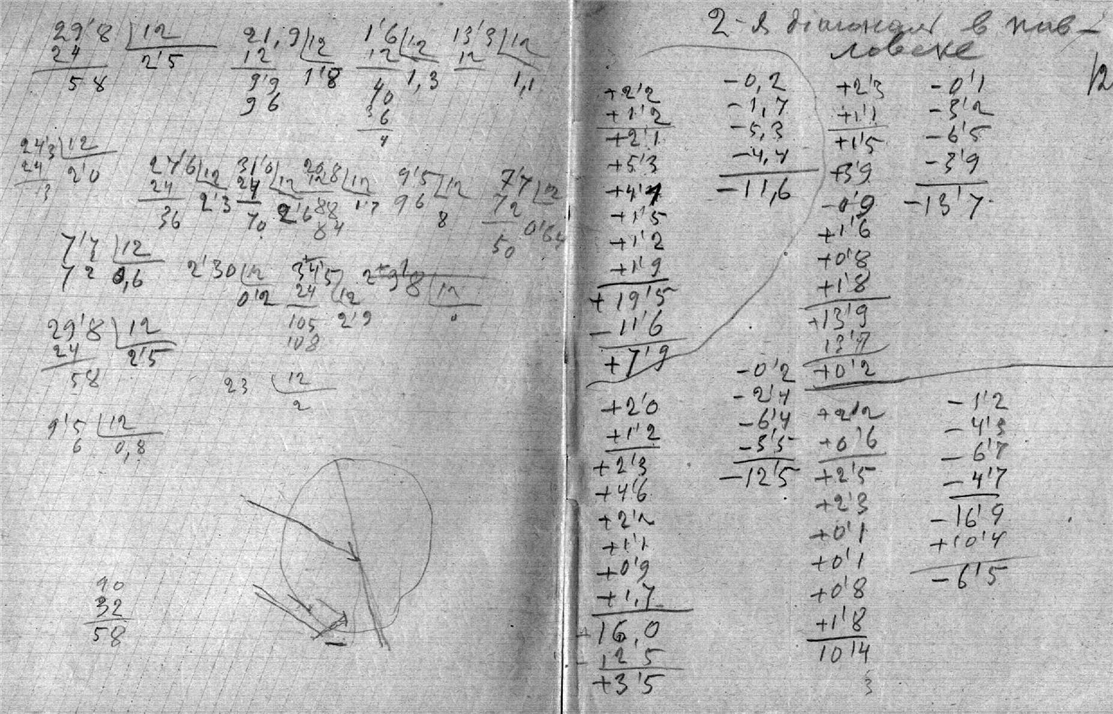 29'8 | 12
24 2'5
58
21,9 | 12
12 1'8
9'9
96
1'6 | 12
12 1,3
40
36
4
13'3 | 12
12 1,1
24'3 | 12
24 2'0
13
27'6 | 12
24 2'3
36
31'0 | 12
24 2'6
70
20'8 | 12
12 1'7
88
84
9'5 | 12
96 8
7'7 | 12
72 0'64
50
7'7 | 12
72 0,6
2'30 | 12
0'2
34'5 | 12
24 2'9
105
108
29'8 | 12
24 2'5
58
23 12
2
9'5 | 12
6 0,8
90
32
58
2-я диагональ в Пав-
ловске
12
+2'2
+1'2
+2'1
+5'3
+4'1
+1'5
+1'2
+1'9
+19'5
-11'6
+7'9
-0,2
-1,7
-5,3
-4,4
-11,6
+2'3
+1'1
+1'5
+3'9
-0'9
+1'6
+0'8
+1'8
+13'9
13'7
+0'2
-0'1
-3'2
-6'5
-3'9
-13'7
+2'0
+1'2
+2'3
+4'6
+2'2
+1'1
+0'9
+1,7
16,0
12'5
+3'5
-0'2
-2'4
-6'4
-3'5
-12'5
+2'2
+0'6
+2'5
+2'3
+0'1
+0'1
+0'8
+1'8
10'4
3
-1'2
-4'3
-6'7
-4'7
-16'9
+10'4
-6'5